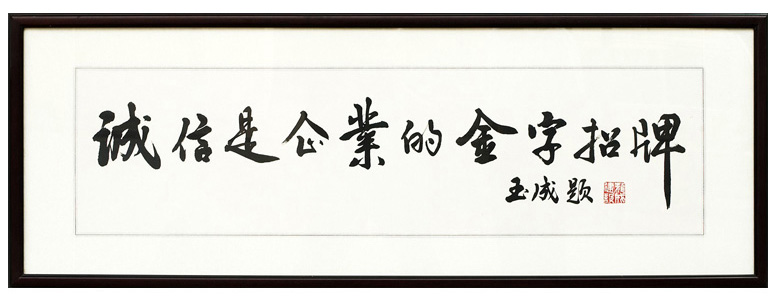 誠信是企業的金字招牌
玉成题